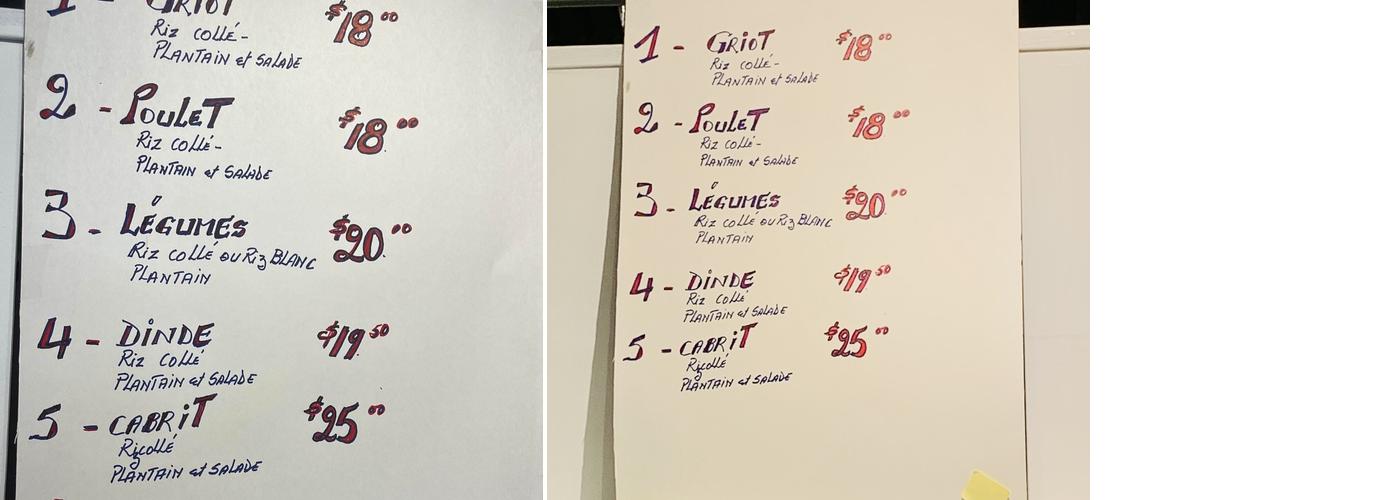 1 - GRIOT $18.00
Riz collé -
PLANTAIN et SALADE
2 - POULET $18.00
Riz collé -
PLANTAIN et SALADE
3 - LÉGUMES $20.00
Riz collé ou Riz BLANC
PLANTAIN
4 - DINDE $19.50
Riz collé
PLANTAIN et SALADE
5 - CABRIT $25.00
Rizcollé
PLANTAIN et SALADE
1 - GRIOT $18.00
Riz collé -
PLANTAIN et SALADE
2 - POULET $18.00
Riz collé -
PLANTAIN et SALADE
3 - LÉGUMES $20.00
Riz collé ou Riz BLANC
PLANTAIN
4 - DINDE $19.50
Riz collé
PLANTAIN et SALADE
5 - CABRIT $25.00
Rizcollé
PLANTAIN et SALADE